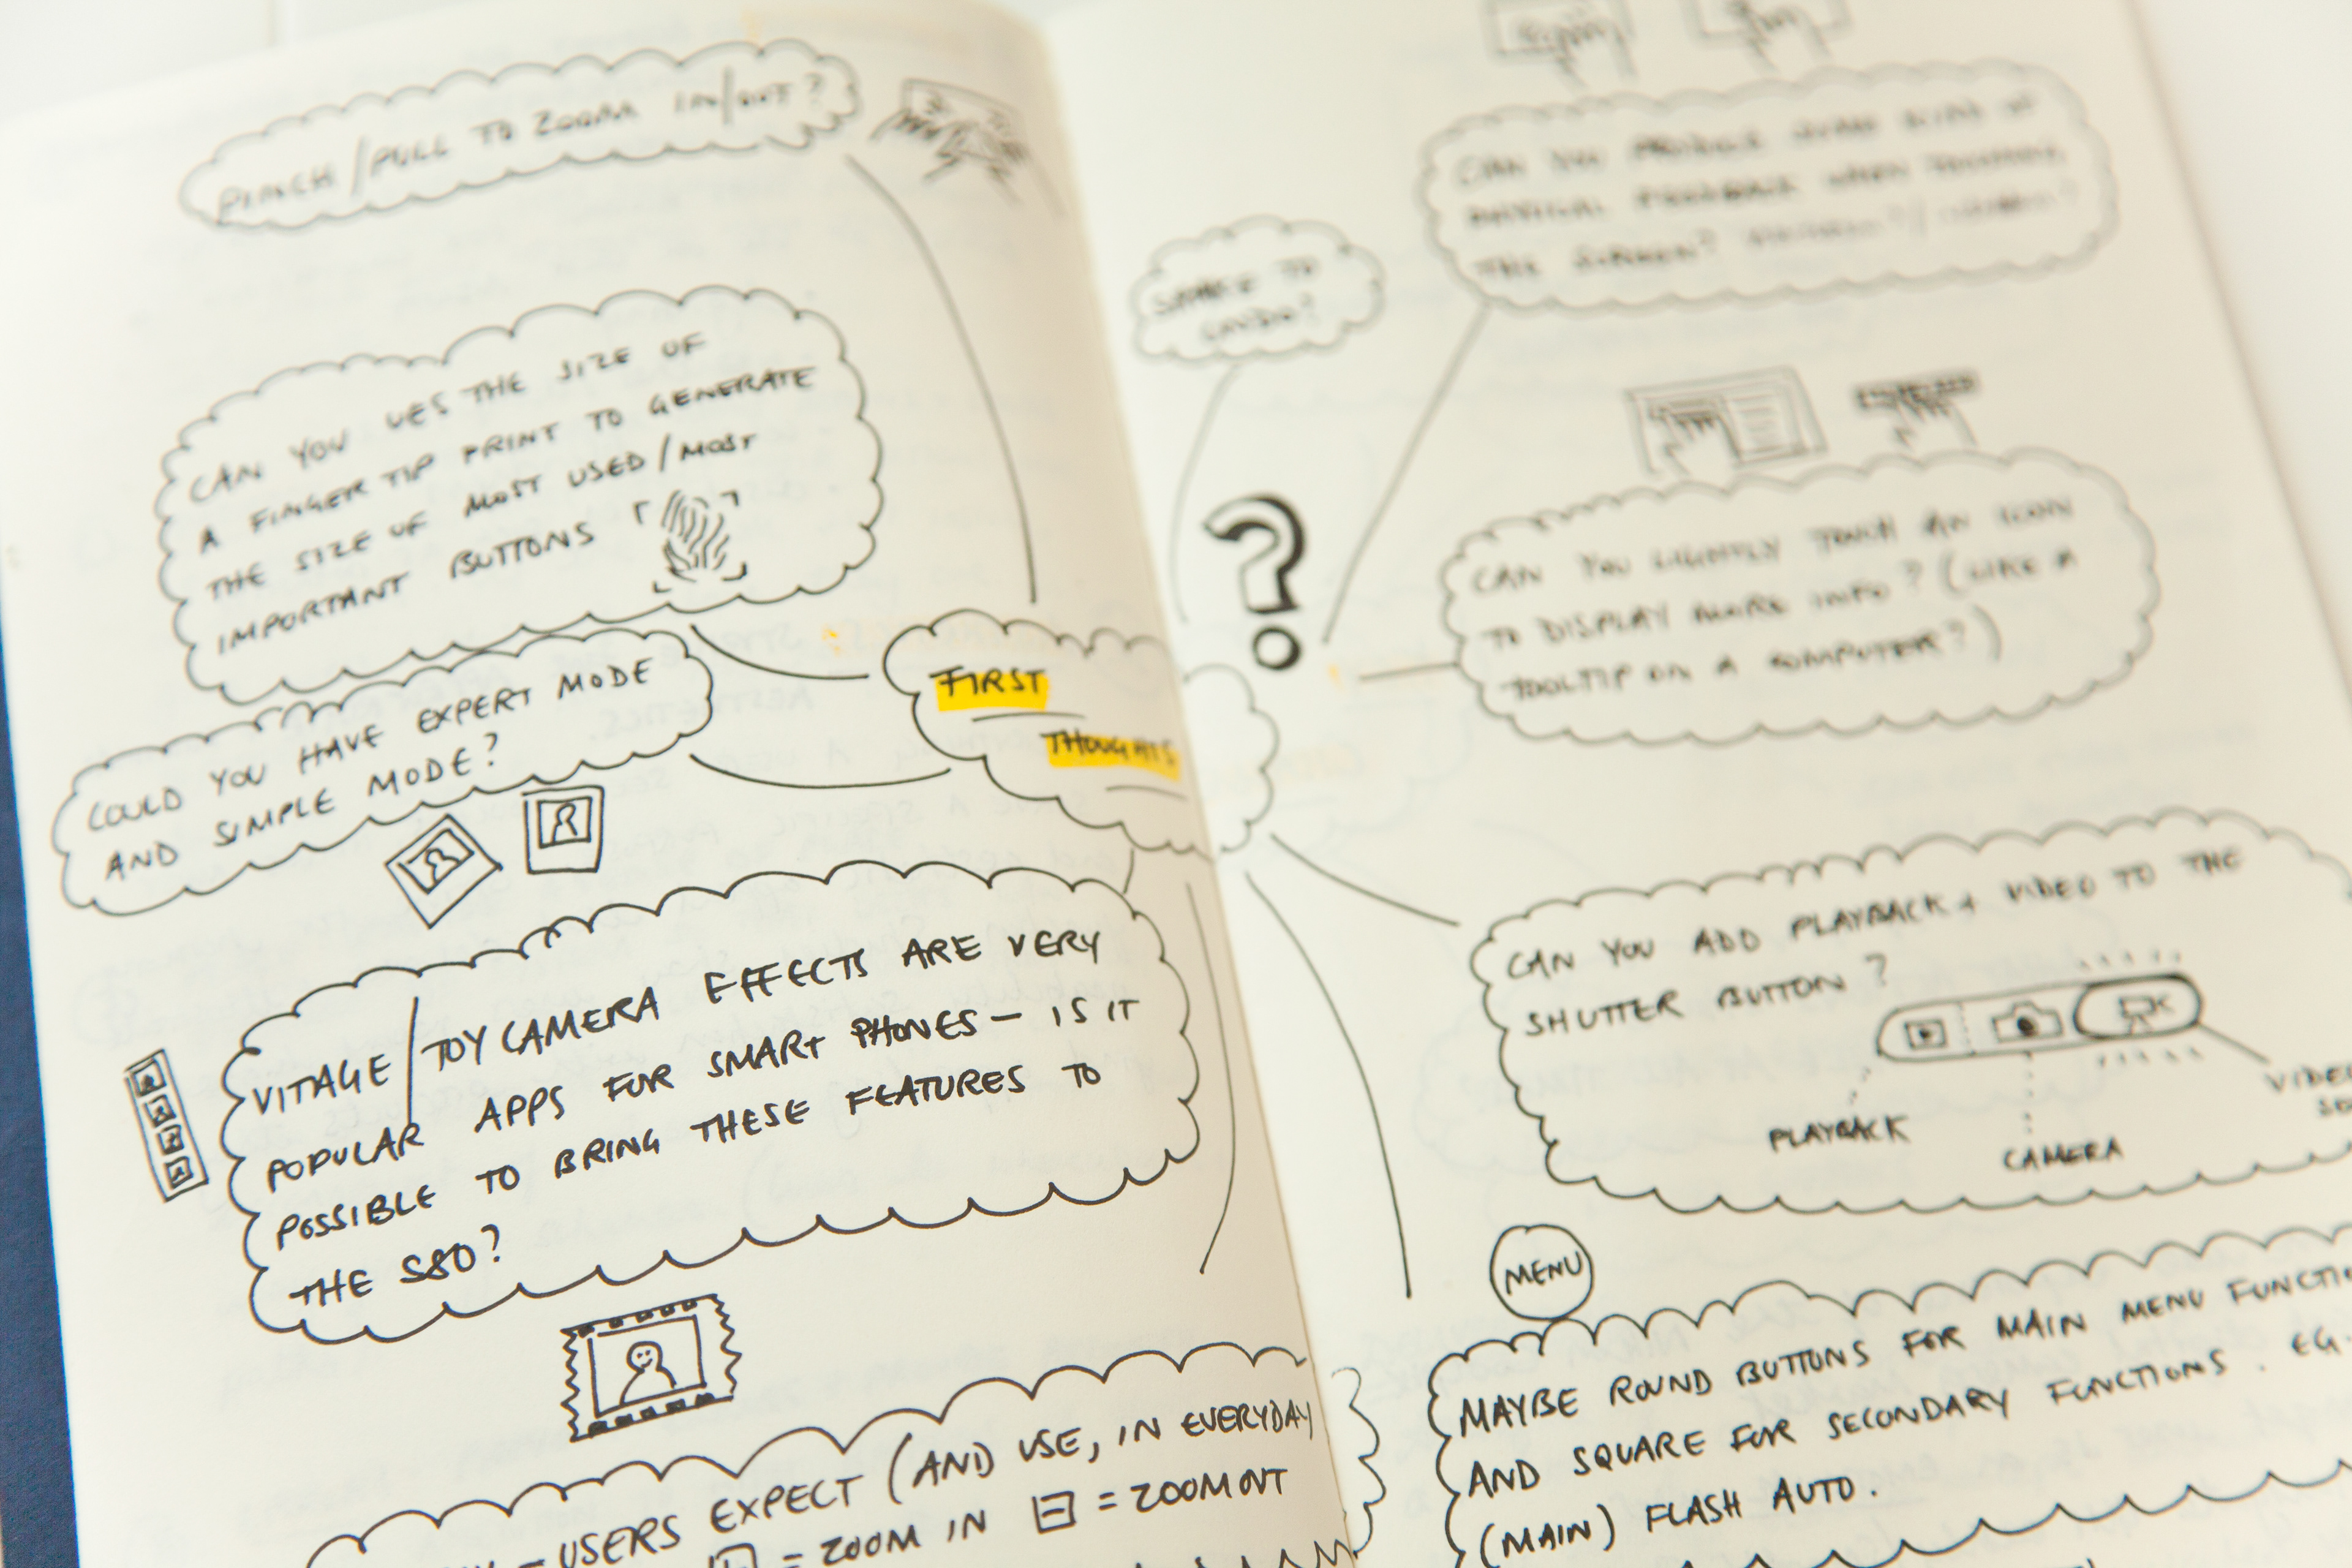 PINCH/PULL TO ZOOM IN/OUT?
CAN YOU UES THE SIZE OF
A FINGER TIP PRINT TO GENERATE
THE SIZE OF MOST USED/MOST
IMPORTANT BUTTONS
COULD YOU HAVE EXPERT MODE
AND SIMPLE MODE?
FIRST
THOUGHTS
VITAGE/TOY CAMERA EFFECTS ARE VERY
POPULAR APPS FOR SMART PHONES – IS IT
POSSIBLE TO BRING THESE FEATURES TO
THE S80?
– USERS EXPECT (AND USE, IN EVERYDAY
= ZOOM IN ⊟ = ZOOM OUT
?
SHAKE TO
UNDO?
CAN YOU PRODUCE SOME KIND OF
PHYSICAL FEEDBACK WHEN TOUCHING
THE SCREEN?
CAN YOU LIGHTLY TOUCH AN ICON
TO DISPLAY MORE INFO? (LIKE A
TOOLTIP ON A COMPUTER?)
CAN YOU ADD PLAYBACK + VIDEO TO THE
SHUTTER BUTTON?
PLAYBACK
CAMERA
VIDEO
MENU
MAYBE ROUND BUTTONS FOR MAIN MENU FUNCTI
AND SQUARE FOR SECONDARY FUNCTIONS. EG.
(MAIN) FLASH AUTO.